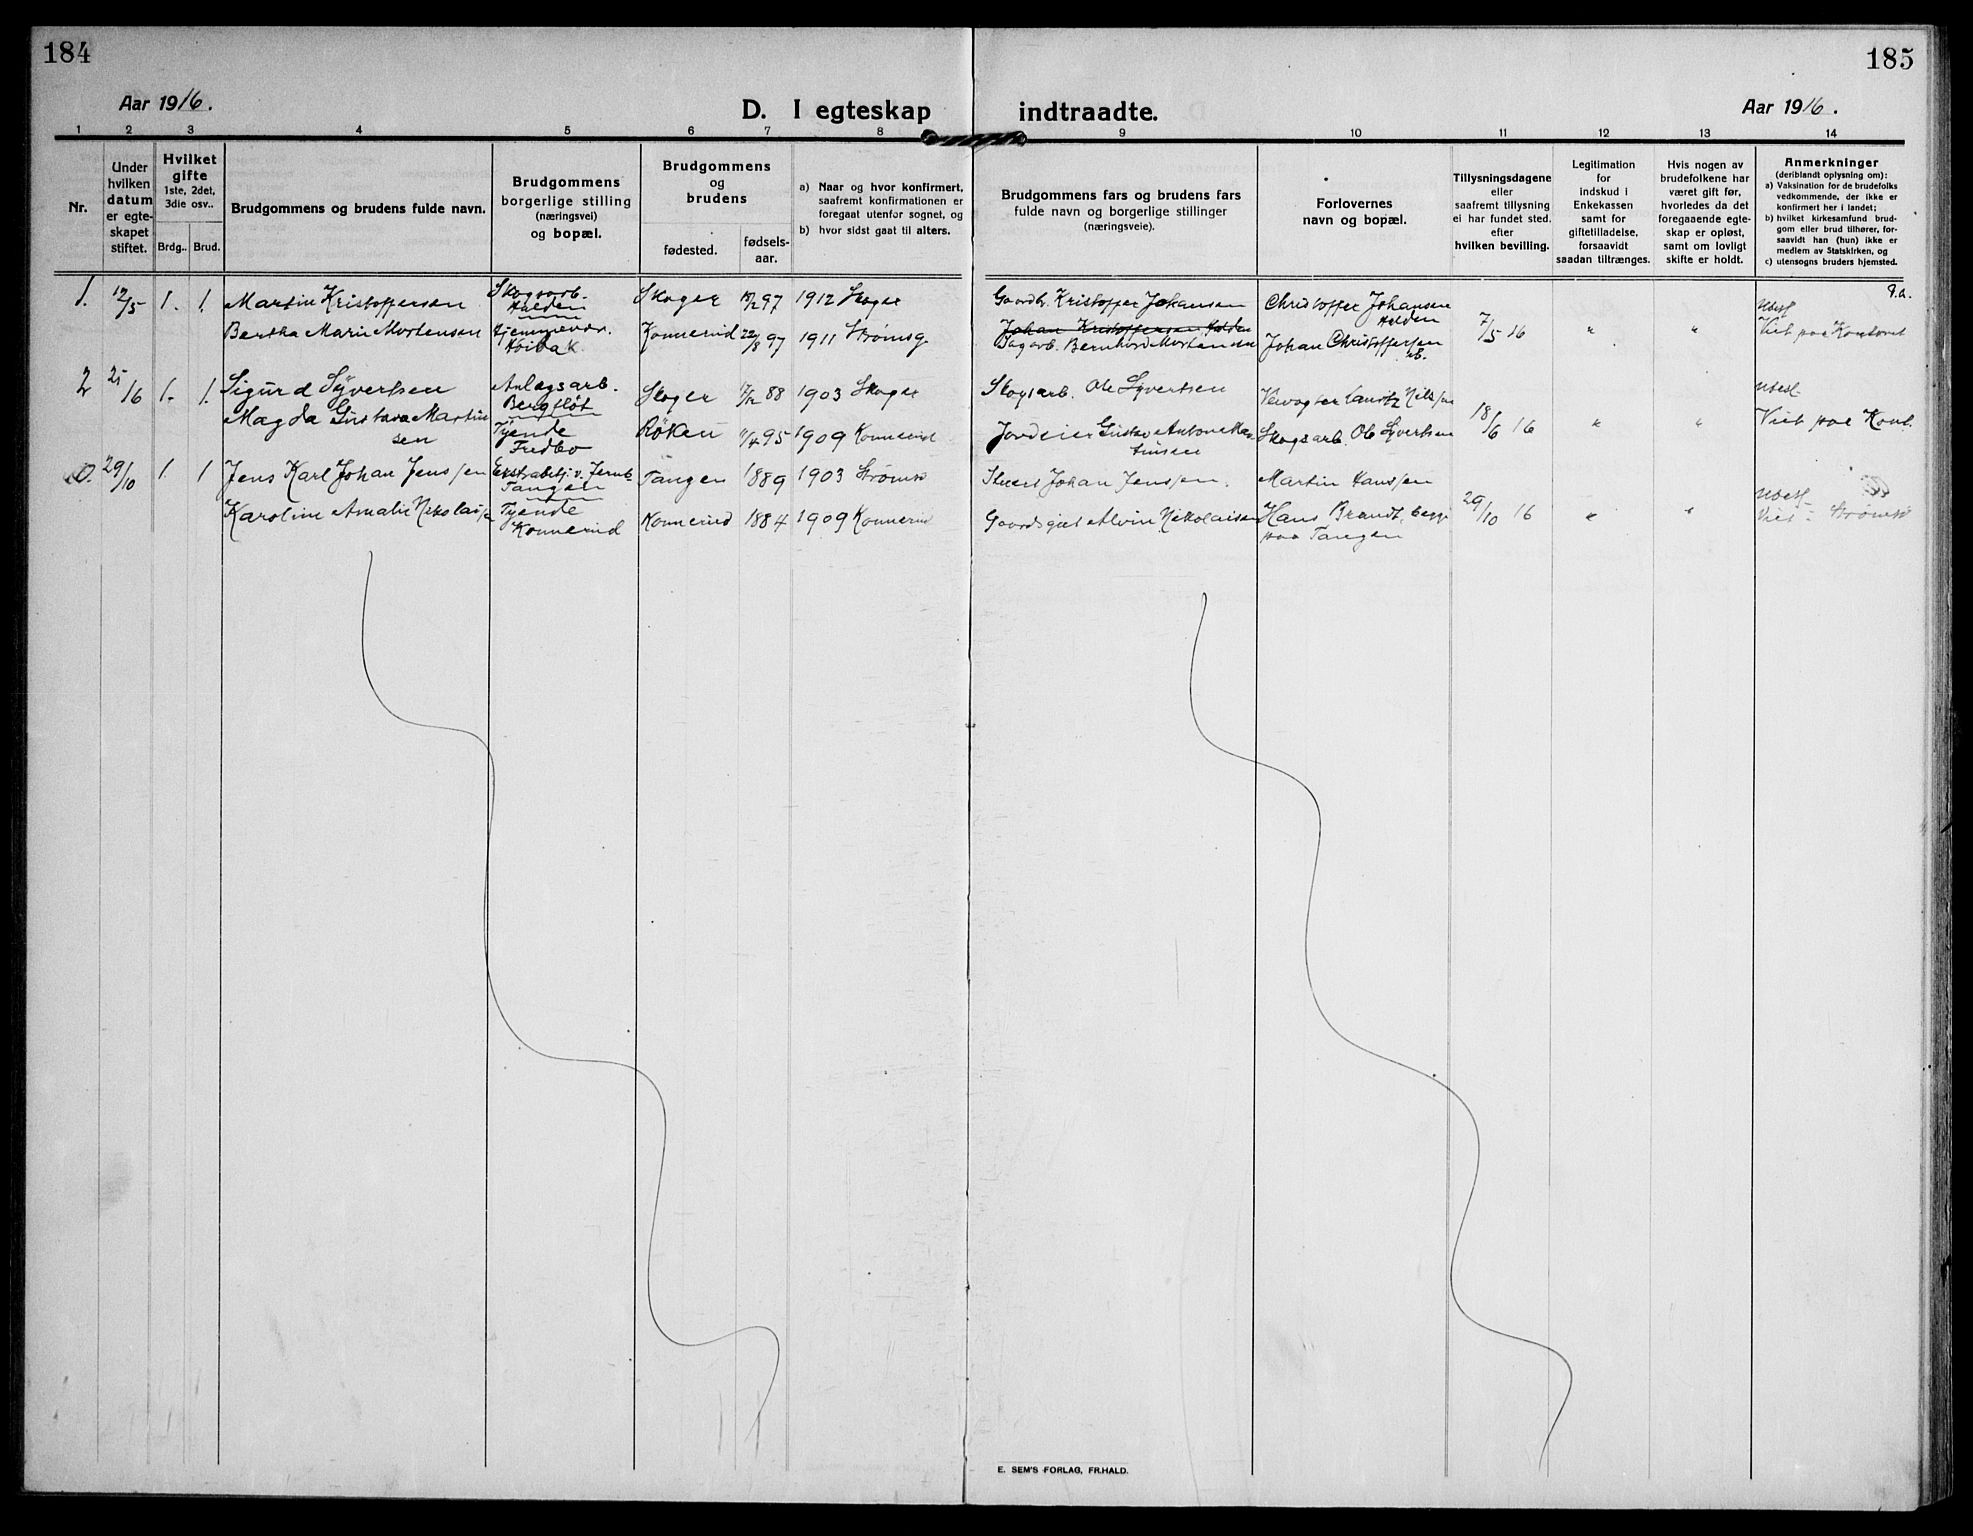 184
185
Aar 1916.
D. I egteskap indtraadte.
Aar 1916.
1 2 3 4 5 6 7 8 9 10 11 12 13 14
Nr.
Under
hvilken
datum
er egte-
skapet
stiftet.
Hvilket
gifte
1ste, 2det,
3die osv..
Brdg.. Brud.
Brudgommens og brudens fulde navn.
Brudgommens
borgerlige stilling
(næringsvei)
og bopæl.
Brudgommens
og
brudens
fødested.
fødsels-
aar.
a) Naar og hvor konfirmert,
saafremt konfirmationen er
foregaat utenfor sognet, og
b) hvor sidst gaat til alters.
Brudgommens fars og brudens fars
fulde navn og borgerlige stillinger
(næringsveie).
Forlovernes
navn og bopæl.
Tillysningsdagene
eller
saafremt tillysning
ei har fundet sted.
efter
hvilken bevilling.
Legitimation
for
indskud i
Enkekassen
samt for
giftetilladelse,
forsaavidt
saadan tiltrænges.
Hvis nogen av
brudefolkene har
været gift før,
hvorledes da det
foregaaende egte-
skap er opløst,
samt om lovligt
skifte er holdt.
Anmerkninger
(deriblandt oplysning om):
a) Vaksination for de brudefolks
vedkommende, der ikke er
konfirmert her i landet;
b) hvilket kirkesamfund brud-
gom eller brud tilhører, for-
saavidt han (hun) ikke er
medlem av Statskirken, og
c) utensogns bruders hjemsted.
1. 12/5 1. 1. Martin Kristoffersen Skogsarb. Halden Skoger 97 1912 Skoger Gaardbr. Kristoffer Johansen Christoffer Johansen Halden
Johan Kristoffersen Halden
Bertha Marie Mortensen Hjemmevær. Høibak Konnerud 22/8 97 1911 Strømsg. Bagarb. Bernhard Mortensen Johan Christoffersen 7/5 16 " " Viet paa Kontoret
2 25/6 1. 1. Sigurd Syvertsen Anlægsarb. Bergfløt Skoger 88 1903 Skoger Skogsarb. Ole Syvertsen Lauritz Nilssen
Magda Gustava Martinsen Tjende Fredbo Røken 95 1909 Konnerud Jordeier Gustav Anton Martinsen Skogsarb. Ole Syvertsen 18/6 16 " " Viet paa Kont.
29/10 1. 1 Jens Karl Johan Jenssen Ekstrabetj. v. Jernb. Tangen Tangen 1889 1903 Strømsø Johan Jenssen. Martin Hanssen
Karoline Amalie Nikolaisen Tjende Konnerud Konnerud 1884 1909 Konnerud Gaardsgut Alvin Nikolaisen Hans Brandt, begge paa Tangen 29/10 16 " " Viet i Strømsø
E. SEM'S FORLAG, FR.HALD.